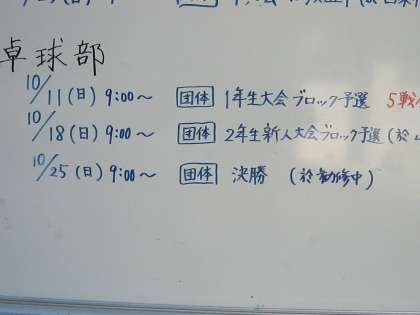 卓球部
10/11(日) 9:00〜 団体 1年生大会 ブロック予選 5戦
10/18(日) 9:00〜 団体 2年生新人大会ブロック予選(於
10/25(日) 9:00〜 団体 決勝 (於勧修中)